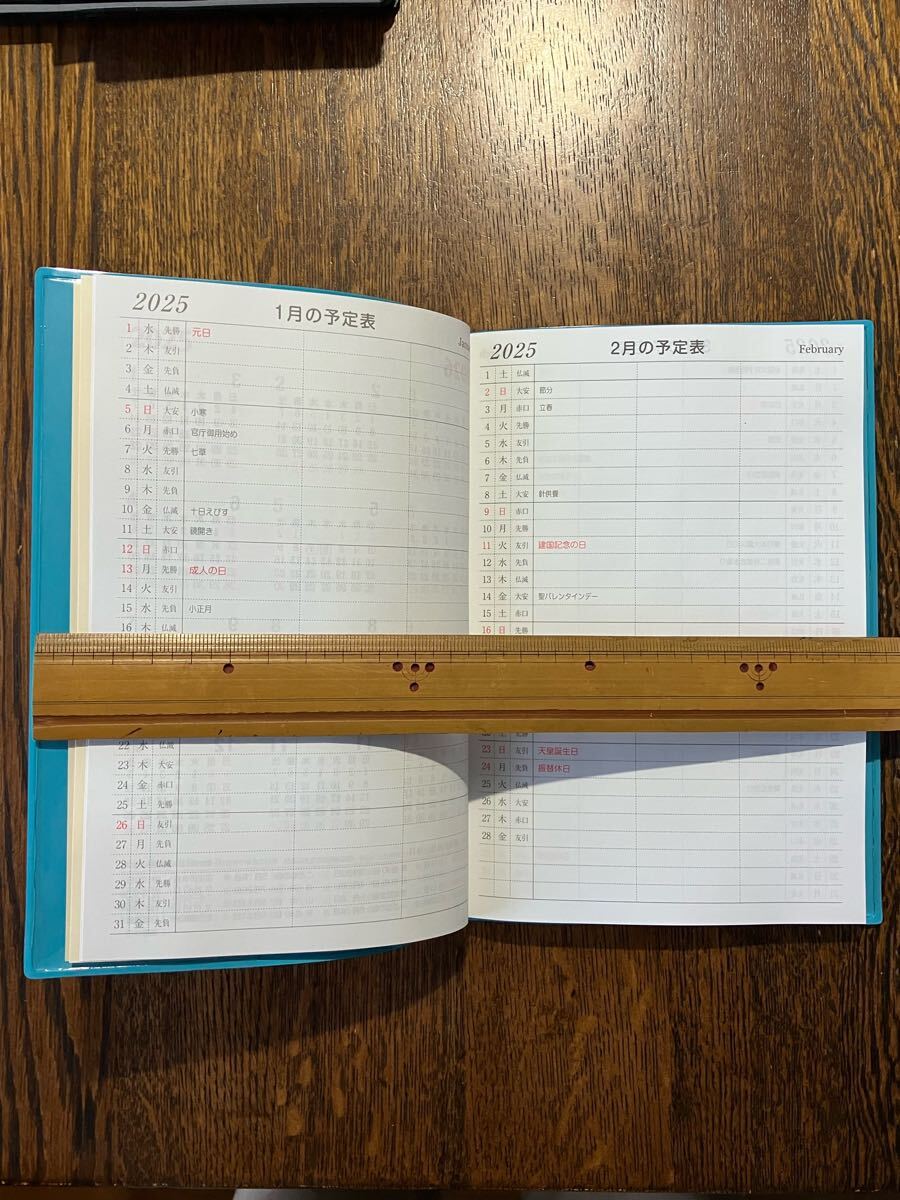 2025 1月の予定表
1 水 先勝 元日
2 木 友引
3 金 先負
4 土 仏滅
5 日 大安 小寒
6 月 赤口 官庁御用始め
7 火 先勝 七草
8 水 友引
9 木 先負
10 金 仏滅 十日えびす
11 土 大安 鏡開き
12 日 赤口
13 月 先勝 成人の日
14 火 友引
15 水 先負 小正月
16 木 仏滅
22 水 仏滅
23 木 大安
24 金 赤口
25 土 先勝
26 日 友引
27 月 先負
28 火 仏滅
29 水 先勝
30 木 友引
31 金 先負
2025 2月の予定表 February
1 土 仏滅
2 日 大安 節分
3 月 赤口 立春
4 火 先勝
5 水 友引
6 木 先負
7 金 仏滅
8 土 大安 針供養
9 日 赤口
10 月 先勝
11 火 友引 建国記念の日
12 水 先負
13 木 仏滅
14 金 大安 聖バレンタインデー
15 土 赤口
16 日 先勝
23 日 友引 天皇誕生日
24 月 先負 振替休日
25 火 仏滅
26 水 大安
27 木 赤口
28 金 友引